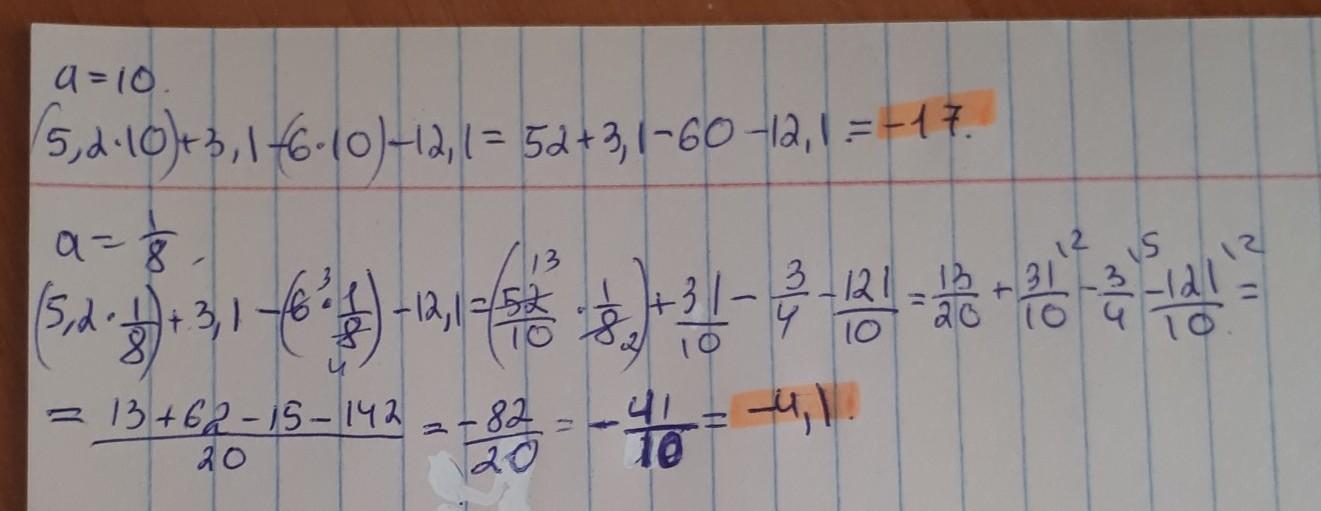 a = 10.
(5,2·10)+3,1-(6·10)-12,1 = 52+3,1-60-12,1 = -17.
a = 1/8.
(5,2·1/8)+3,1-(6³·1/8 4)-12,1 = (52 13/10·1/8 2)+31/10-3/4-121/10 = 13/20+31/10\2-3/4\5-121/10\2 =
= 13+62-15-142/20 = -82/20 = -41/10 = -4,1.